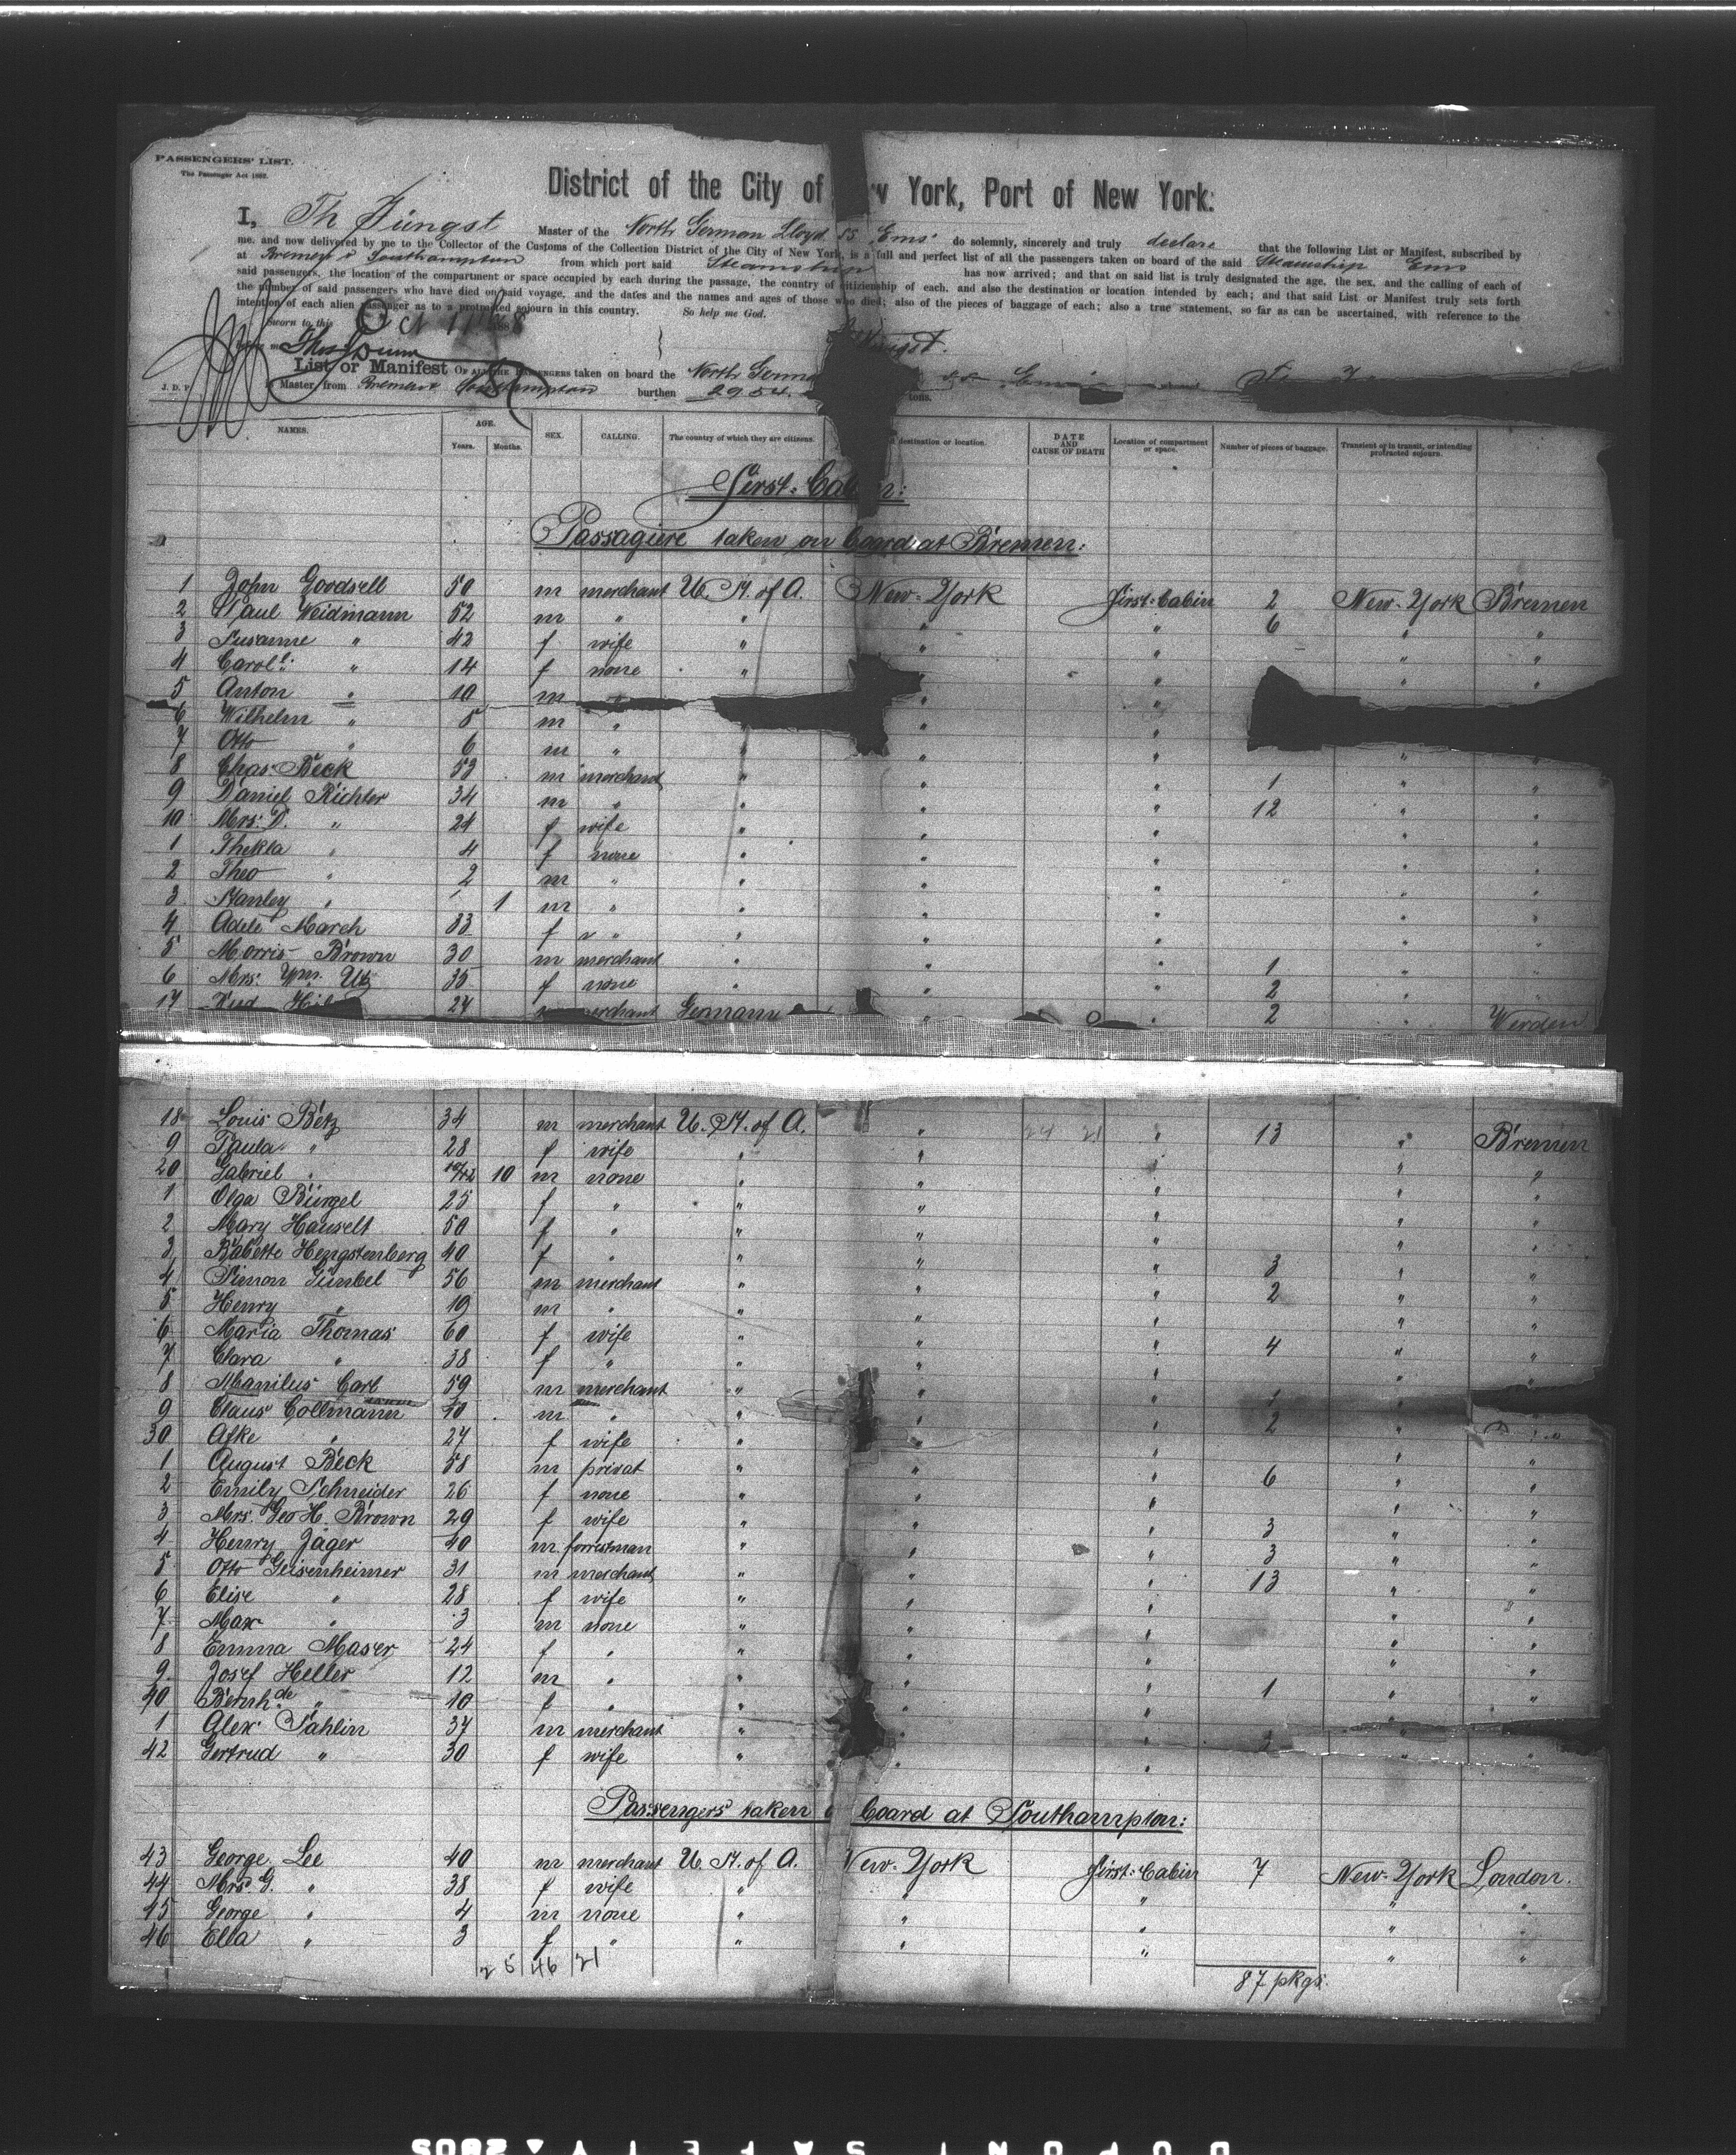 PASSENGERS' LIST.
The Passenger Act 1882.
District of the City of w York, Port of New York:
I, Th Jüngst Master of the North German Lloyd SS Ems do solemnly, sincerely and truly declare that the following List or Manifest, subscribed by
me, and now delivered by me to the Collector of the Customs of the Collection District of the City of New York, is a full and perfect list of all the passengers taken on board of the said Steamship Ems
at Bremen & Southampton from which port said Steamship has now arrived; and that on said list is truly designated the age, the sex, and the calling of each of
said passengers, the location of the compartment or space occupied by each during the passage, the country of citizenship of each, and also the destination or location intended by each; and that said List or Manifest truly sets forth
the number of said passengers who have died on said voyage, and the dates and the names and ages of those who died; also of the pieces of baggage of each; also a true statement, so far as can be ascertained, with reference to the
intention of each alien passenger as to a protracted sojourn in this country. So help me God.
Sworn to this Oct 11 188
List or Manifest OF ALL THE PASSENGERS taken on board the North Germa
J. D. P. Master, from Bremen & Southampton burthen 2954. tons.
NAMES. AGE. Years. Months. SEX. CALLING. The country of which they are citizens. destination or location. DATE AND CAUSE OF DEATH Location of compartment or space. Number of pieces of baggage. Transient or in transit, or intending protracted sojourn.
First-Cabin:
Passagiere taken on board at Bremen:
1 John Goodsell 50 m merchant U. St. of A. New-York First-Cabin 2 New-York Bremen
2 Paul Weidmann 52 m " " " " 6 " "
3 Susanne " 42 f wife " " " " "
4 Carol " 14 f none " " " " "
5 Anton " 10 m " " "
6 Wilhelm " 8 m " " "
7 Otto " 6 m " " " " " "
8 Chas Beck 53 m merchant " " " 1 " "
9 Daniel Richter 34 m " " " " 12 " "
10 Mrs. D. " 24 f wife " " " " "
1 Thekla " 4 f none " " " " "
2 Theo " 2 m " " " " " "
3 Stanley " 1 m " " " " " "
4 Adele March 33 f " " " " " "
5 Morris Brown 30 m merchant " " " 1 " "
6 Mrs. Wm. Utz 35 f none " " " 2 " "
17 24 merchant Germany " " 2 " Werden
18 Louis Betz 34 m merchant U. St. of A. " 24 21 " 13 " Bremen
9 Paula " 28 f wife " " " " "
20 Gabriel " 10/12 10 m none " " " " "
1 Olga Bürgel 25 f " " " " " "
2 Mary Hauselt 50 f " " " " " "
3 Babette Hengstenberg 40 f " " " " 3 " "
4 Simon Gimbel 56 m merchant " " " 2 " "
5 Henry " 19 m " " " " " "
6 Maria Thomas 60 f wife " " " 4 " "
7 Clara " 38 f " " " " " "
8 Manilus Carl 59 m merchant " " " 1 " "
9 Claus Collmann 40 m " " " " 2 "
30 Afke " 27 f wife " " " " "
1 August Beck 58 m privat " " " 6 " "
2 Emily Schneider 26 f none " " " " "
3 Mrs. Geo H. Brown 29 f wife " " " 3 " "
4 Henry Jäger 40 m forrestman " " " 3 " "
5 Otto Geisenheimer 31 m merchant " " " 13 " "
6 Elise " 28 f wife " " " " "
7 Max " 3 m none " " " " "
8 Emma Maser 24 f " " " " " "
9 Josef Heller 12 m " " " " 1 " "
40 Bernh.de " 10 f " " " " " "
1 Alex Sahlin 37 m merchant " " " 2 " "
42 Gertrud " 30 f wife " " " " "
Passengers taken board at Southampton:
43 George Lee 40 m merchant U. St. of A. New-York First-Cabin 7 New-York London.
44 Mrs. G. " 38 f wife " " " " "
45 George " 4 m none " " " " "
46 Ella " 3 f " " " " " "
25 46 21 87 pkgs.